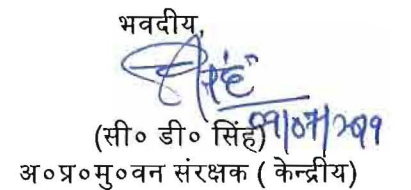 भवदीय,
(सी० डी० सिंह)
अ०प्र०मु०वन संरक्षक ( केन्द्रीय)